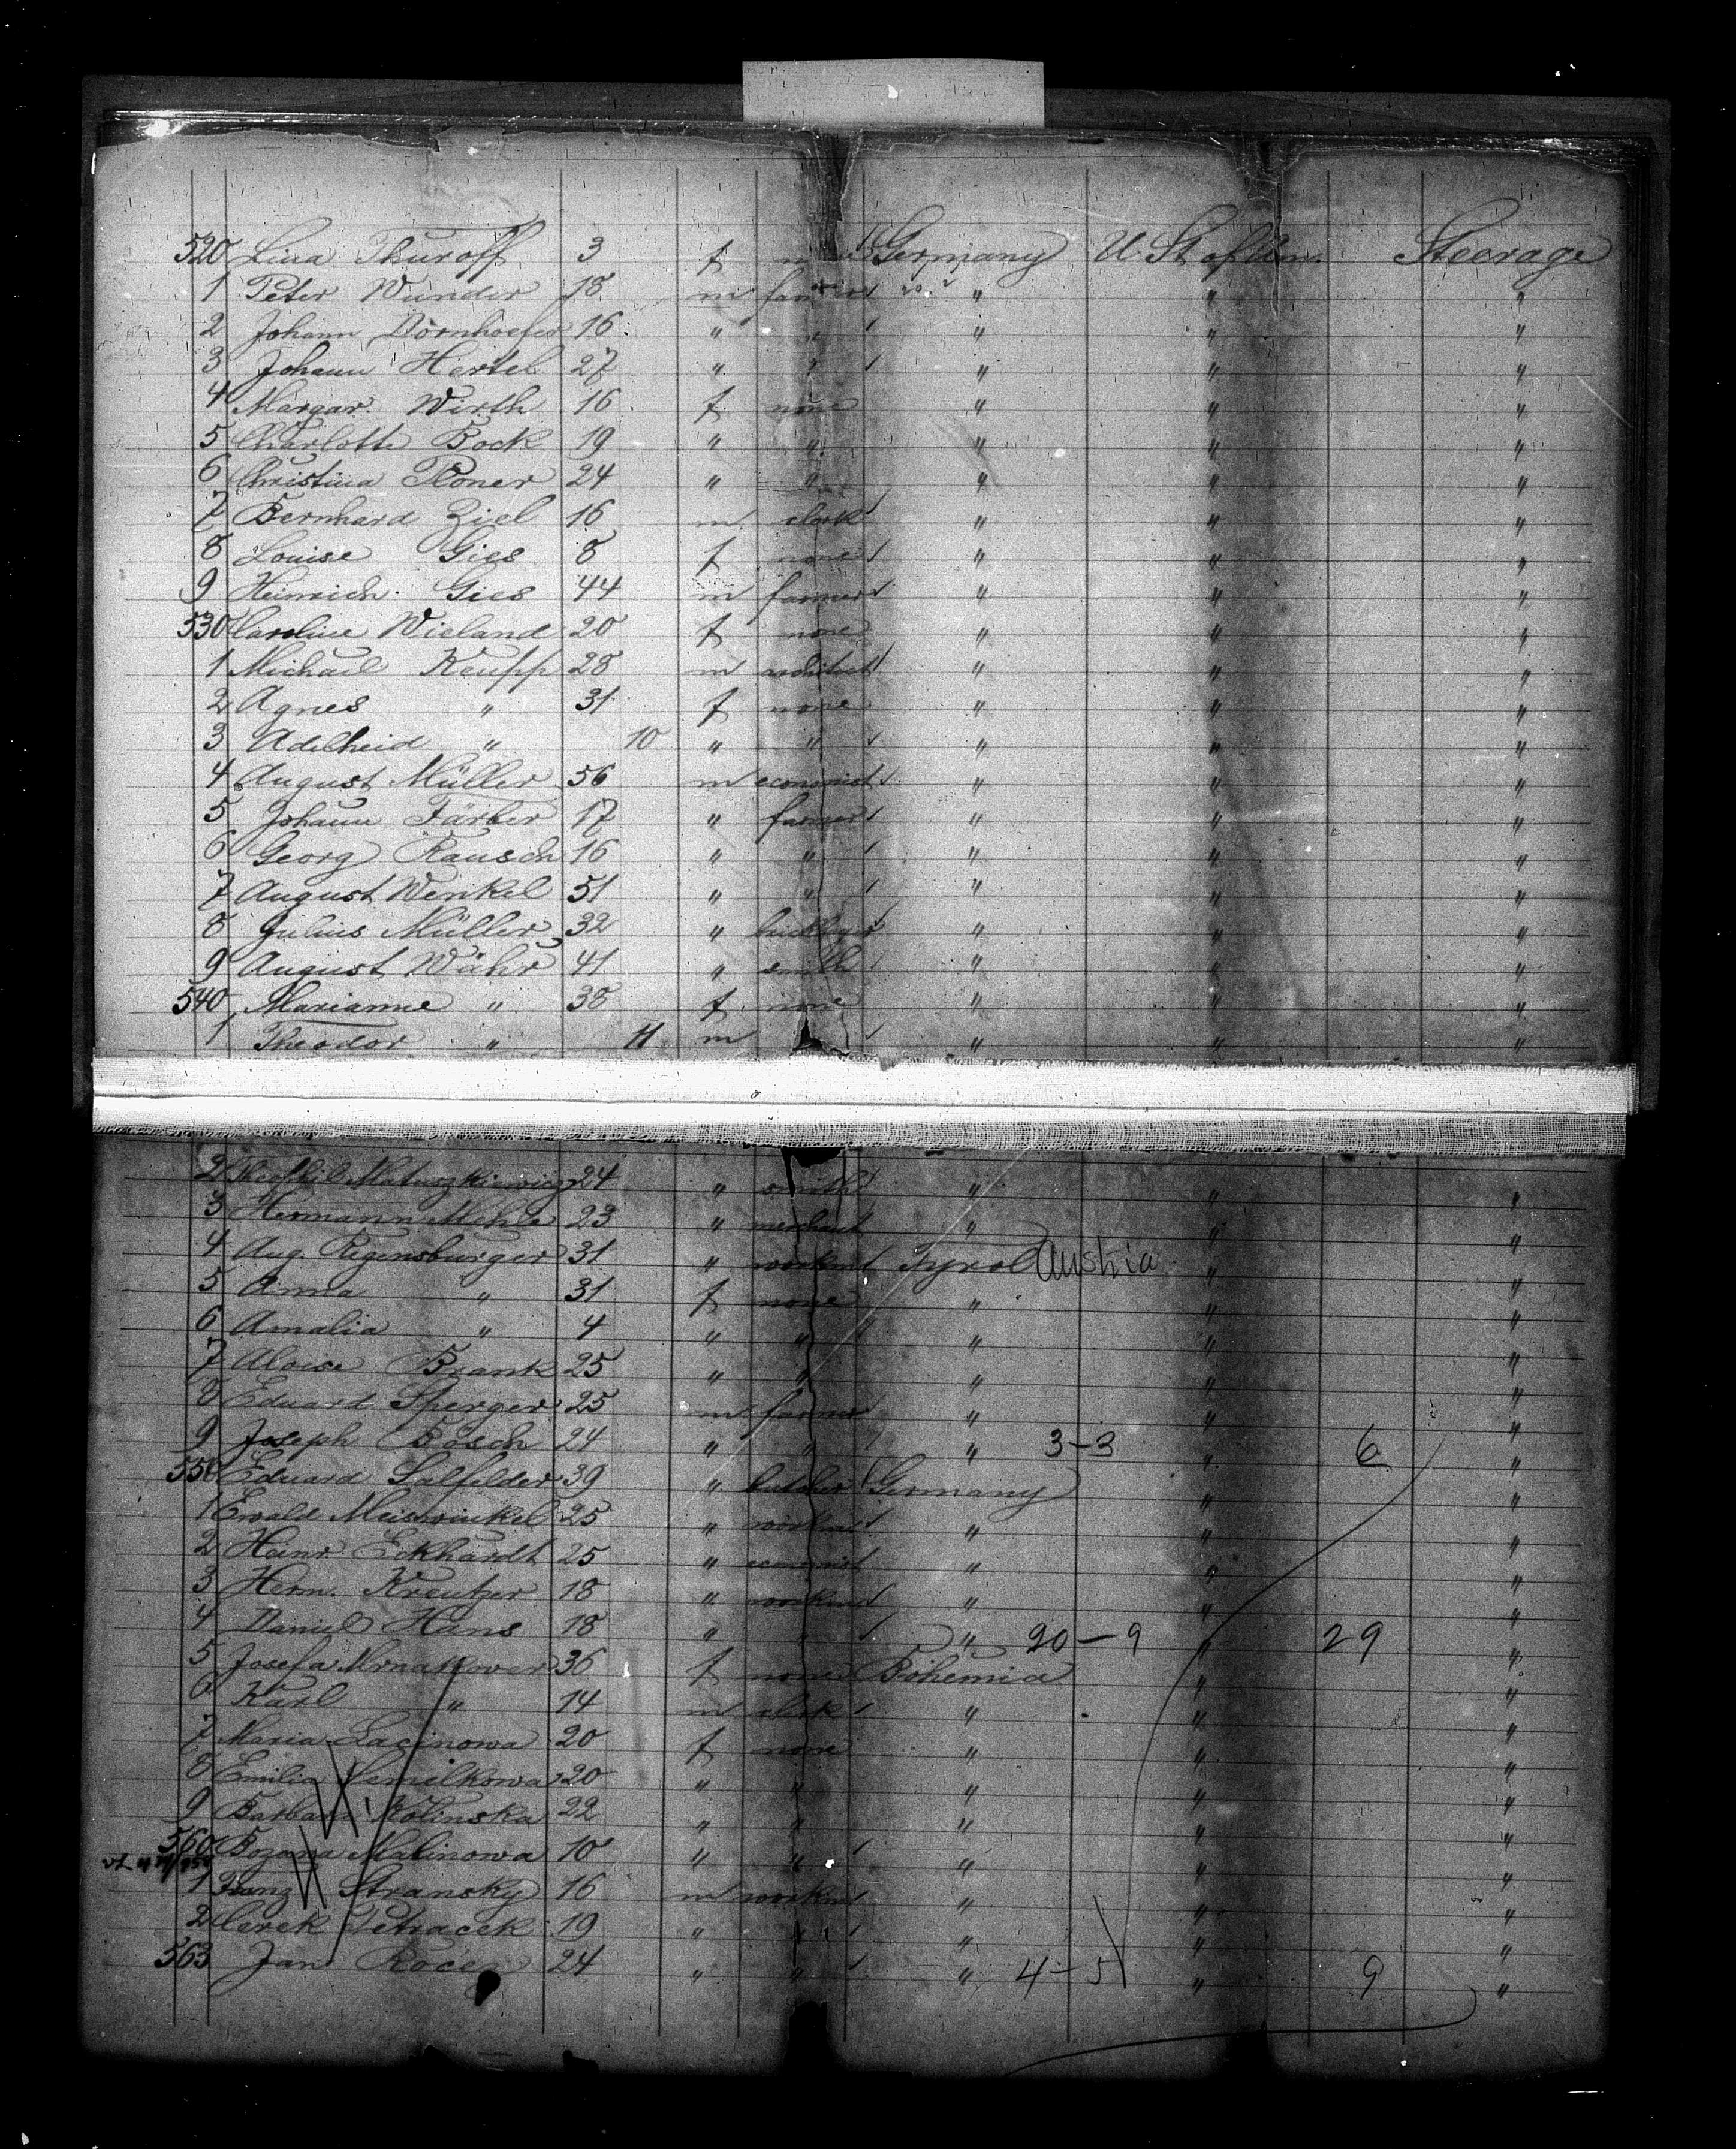 520 Lina Thuroff 3 f Germany U. St of Am. Steerage
1 Peter Wunder 18 m farmer " " "
2 Johann Dörnhoefer 16 " " " " "
3 Johann Hertel 27 " " " " "
4 Margar. Wirth 16 f none " " "
5 Charlotte Bock 19 " " " " "
6 Christina Ploner 24 " " " " "
7 Bernhard Ziel 16 m clerk " " "
8 Louise Gies 8 f none " " "
9 Heinrich Gies 44 m farmer " " "
530 Caroline Wieland 20 f none " " "
1 Michael Keupp 28 m architect " " "
2 Agnes " 31 f none " " "
3 Adelheid " 10 " " " " "
4 August Müller 56 m economist " " "
5 Johann Färber 17 " farmer " " "
6 Georg Rausch 16 " " " " "
7 August Wenkel 51 " " " " "
8 Julius Müller 32 " " " "
9 August Währ 41 " smith " " "
540 Marianne " 38 f none " " "
1 Theodor " 11 m " " "
2 Theophil Matuszkiewicz 24 " smith " " "
3 Hermann Mihle 23 " merchant " " "
4 Aug. Regensburger 31 " workm Tyrol Austria " "
5 Anna " 31 f none " " "
6 Amalia " 4 " " " " "
7 Aloise Brank 25 " " " " "
8 Eduard Sperger 25 m farmer " " "
9 Joseph Bösch 24 " " " 3-3 " 6 "
550 Eduard Salfelder 39 " butcher Germany " "
1 Ewald Meiswinkel 25 " workm " " "
2 Heinr. Eckhardt 25 " economist " " "
3 Herm. Kreutzer 18 " workm " " "
4 Daniel Hans 18 " " " 20-9 " 29 "
5 Josefa 36 f none Bohemia " "
6 Karl " 14 m clerk " " "
7 Maria Lacinowa 20 f none " " "
8 Emilia Semilkowa 20 " " " " "
9 Barbara Kolinska 22 " " " " "
560 Bozana Malinowa 10 " " " " "
1 Franz Stransky 16 m workm " " "
2 Petracek 19 " " " " "
563 Jan Rocen 24 " " " 4-5 " 9 "